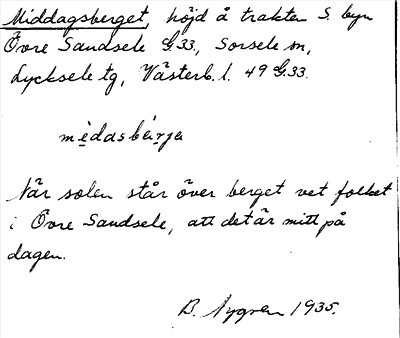 Middagsberget, höjd å trakten S. byn
Övre Sandsele G33, Sorsele sn,
Lycksele tg, Västerb. l. 49 G.33.
mèdasbárja
När solen står över berget vet folket
i Övre Sandsele, att det är mitt på
dagen.
B. Nygren 1935.